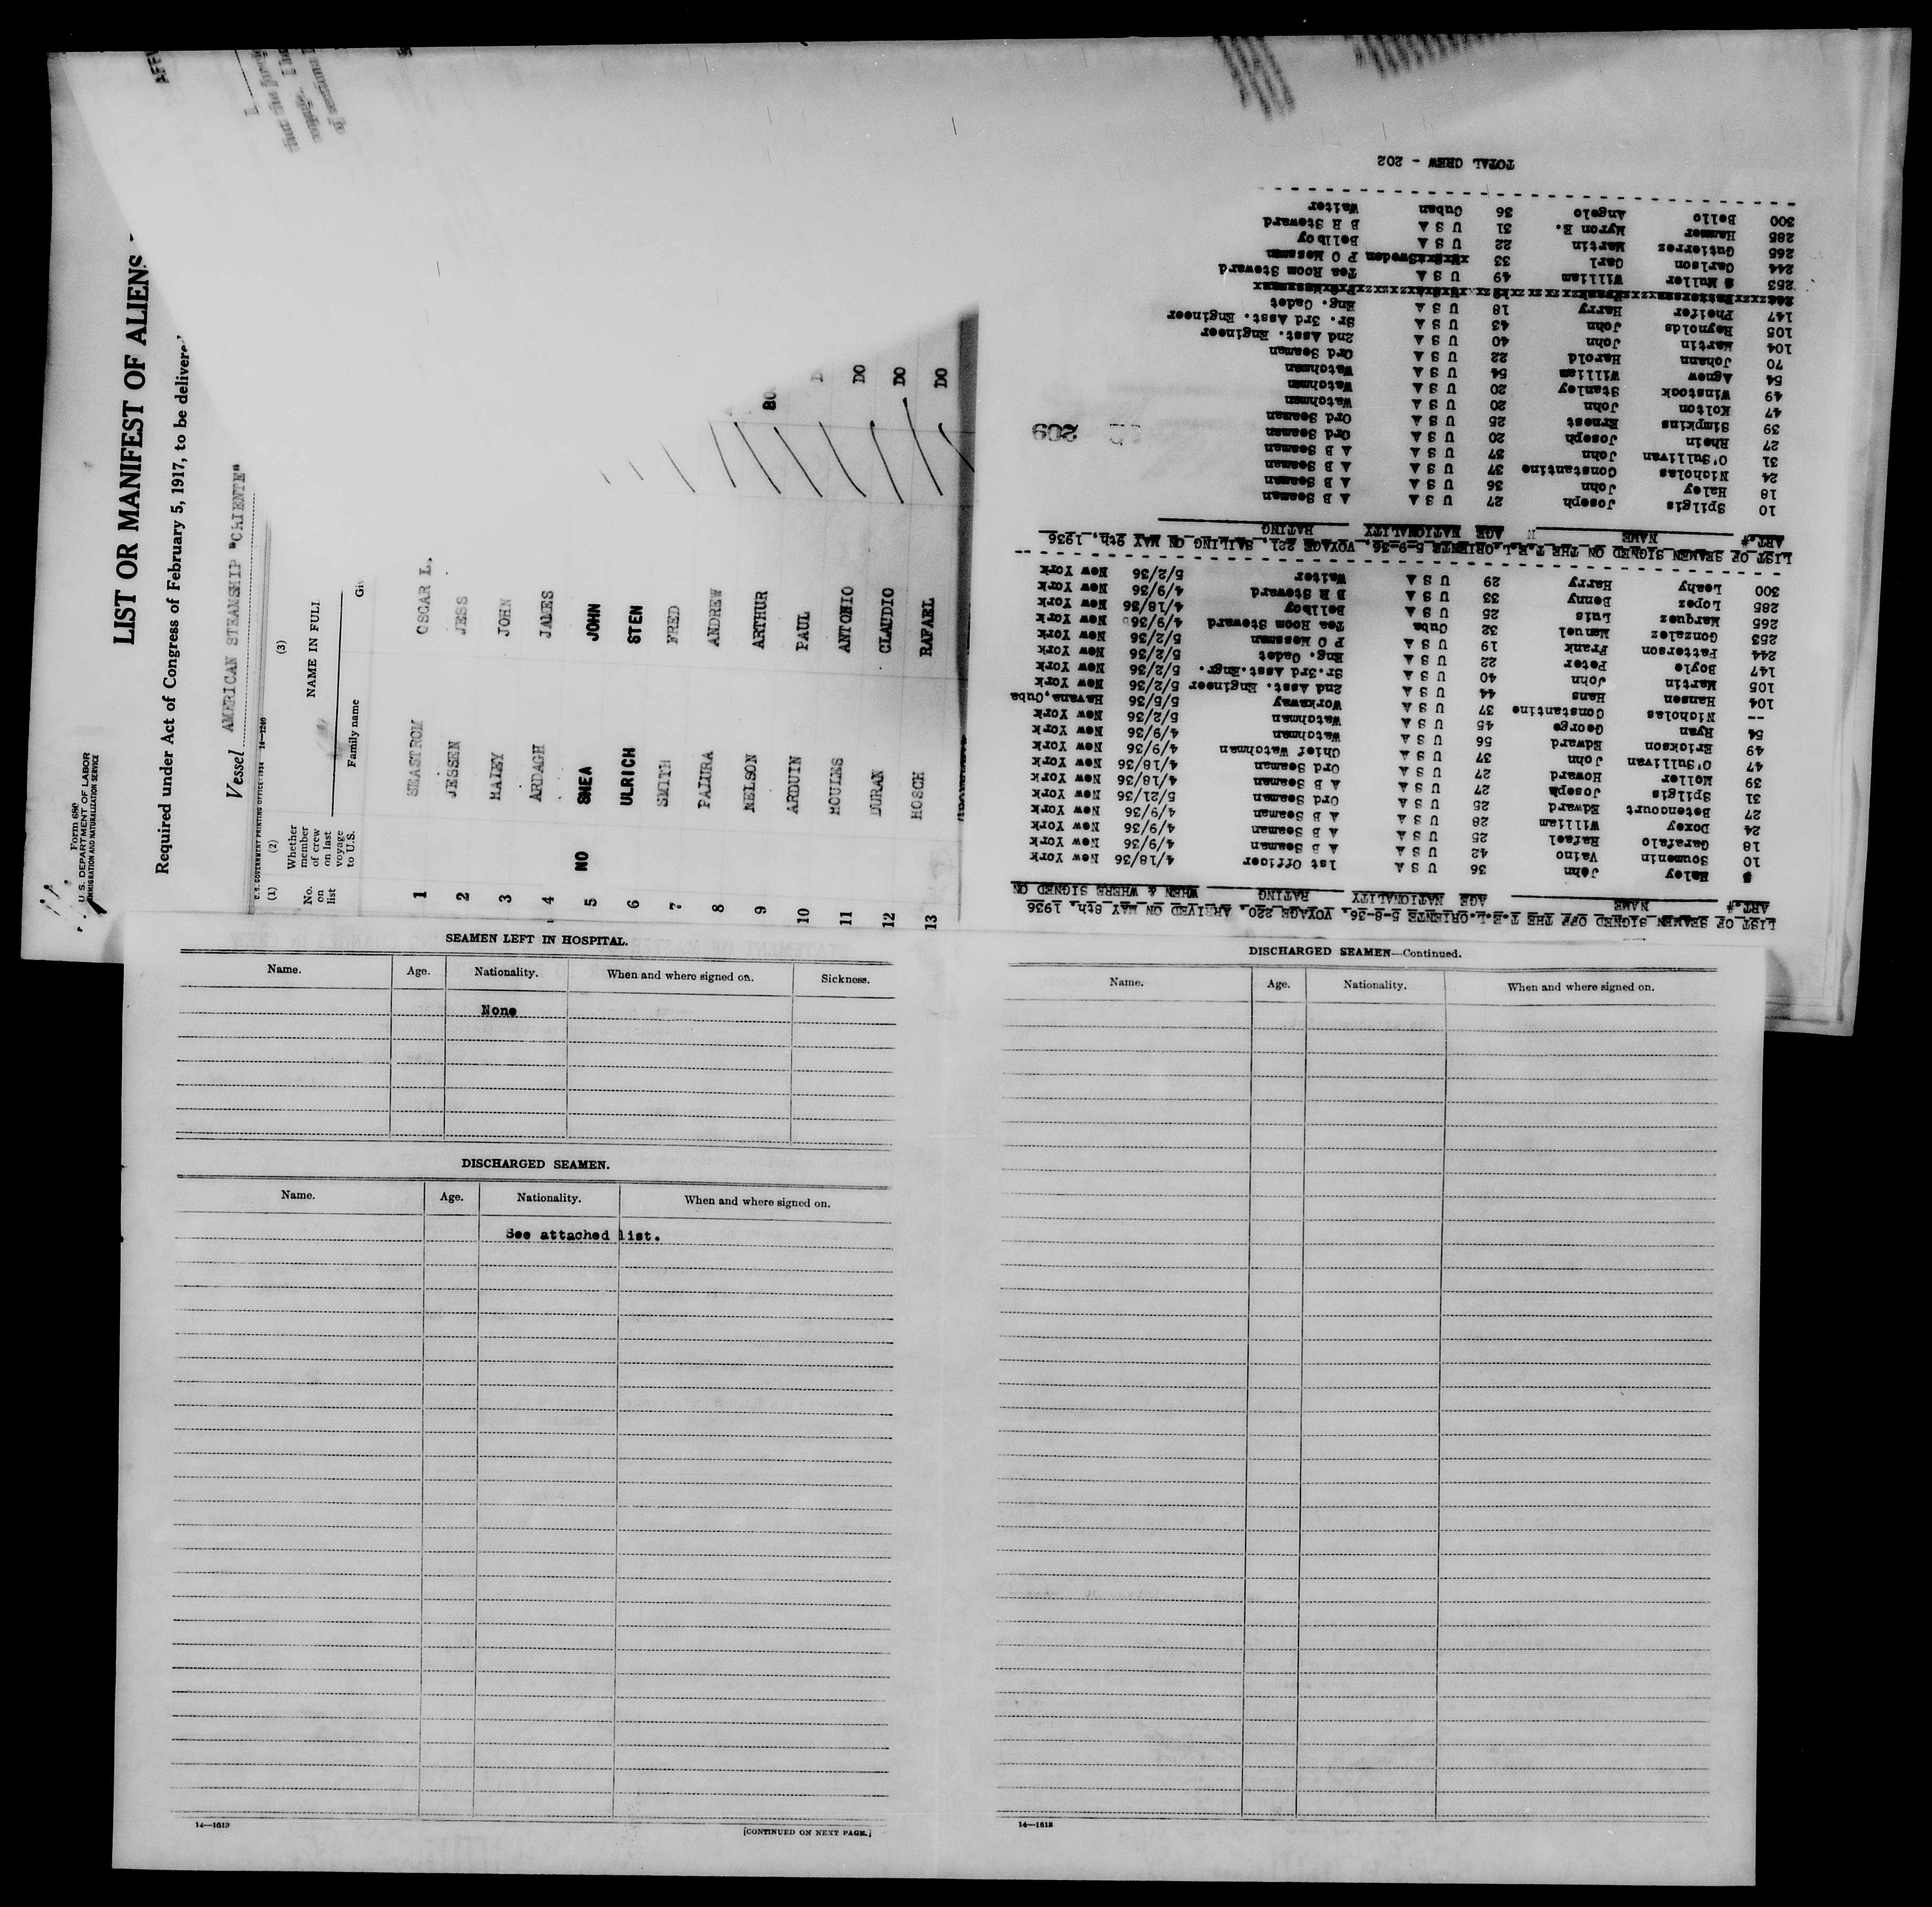 Form 680
U. S. DEPARTMENT OF LABOR
IMMIGRATION AND NATURALIZATION SERVICE
LIST OR MANIFEST OF ALIENS
Required under Act of Congress of February 5, 1917, to be delivered
Vessel AMERICAN STEAMSHIP "ORIENTE"
U. S. GOVERNMENT PRINTING OFFICE: 1934 14—1240
(1) (2) (3)
No. on list Whether member of crew on last voyage to U.S. NAME IN FULL
Family name Giv
1 SEASTROM OSCAR L.
2 JESSEN JESS
3 HALEY JOHN
4 ARDAGH JAMES
5 NO SHEA JOHN
6 ULRICH STEN
7 SMITH FRED
8 PALURA ANDREW
9 NELSON ARTHUR
10 ARDUIN PAUL
11 MOULES ANTONIO DO
12 DURAN CLAUDIO DO
13 HOSCH RAFAEL DO
LIST OF SEAMEN SIGNED OFF THE T.E.L.ORIENTE 5-8-36, VOYAGE 220, ARRIVED ON MAY 8th, 1936
ART.# NAME AGE NATIONALITY RATING WHEN & WHERE SIGNED ON
Haley John 36 U S A 1st Officer 4/18/36 New York
10 Soumenin Vaino 42 U S A A B Seaman 4/9/36 New York
18 Garafalo Rafael 25 U S A A B Seaman 4/9/36 New York
24 Doxey William 28 U S A A B Seaman 4/9/36 New York
27 Betencourt Edward 25 U S A Ord Seaman 5/21/36 New York
31 Spilgis Joseph 27 U S A A B Seaman 4/18/36 New York
39 Moller Howard 27 U S A Ord Seaman 4/18/36 New York
47 O'Sullivan John 37 U S A Chief Watchman 4/9/36 New York
49 Erickson Edward 56 U S A Watchman 4/9/36 New York
54 Ryan George 45 U S A Watchman 5/2/36 New York
-- Nicholas Constantine 37 U S A Workaway 5/5/36 Havana,Cuba
104 Hansen Hans 44 U S A 2nd Asst. Engineer 5/2/36 New York
105 Martin John 40 U S A Sr.3rd Asst.Engr. 5/2/36 New York
147 Boyle Peter 22 U S A Eng. Cadet 5/2/36 New York
244 Patterson Frank 19 U S A P O Messman 5/2/36 New York
253 Gonzalez Manuel 32 Cuba Tea Room Steward 4/9/36 New York
265 Marquez Luis 25 U S A Bellboy 4/18/36 New York
285 Lopez Benny 33 U S A B R Steward 4/9/36 New York
300 Leahy Harry 29 U S A Waiter 5/2/36 New York
LIST OF SEAMEN SIGNED ON THE T.E.L.ORIENTE 5-9-36, VOYAGE 221, SAILING ON MAY 9th, 1936
ART.# NAME AGE NATIONALITY RATING
10 Spilgis Joseph 27 U S A A B Seaman
18 Haley John 36 U S A A B Seaman
24 Nicholas Constantine 37 U S A A B Seaman
31 O'Sullivan John 37 U S A A B Seaman
27 Rhein Joseph 20 U S A Ord Seaman
39 Simpkins Ernest 25 U S A Ord Seaman
47 Kolton John 20 U S A Watchman
49 Winstock Stanley 20 U S A Watchman
54 Agnew William 54 U S A Watchman
70 Johann Harold 22 U S A Ord Seaman
104 Martin John 40 U S A 2nd Asst. Engineer
105 Reynolds John 43 U S A Sr. 3rd Asst. Engineer
147 Pheifer Harry 18 U S A Eng. Cadet
253 Muller William 49 U S A Tea Room Steward
244 Carlson Carl 33 Sweden P O Messman
265 Gutierrez Martin 22 U S A Bellboy
285 Hammer Myron E. 31 U S A B R Steward
300 Bello Angelo 36 Cuban Waiter
TOTAL CREW - 202
209
SEAMEN LEFT IN HOSPITAL.
Name. Age. Nationality. When and where signed on. Sickness.
None
DISCHARGED SEAMEN.
Name. Age. Nationality. When and where signed on.
See attached list.
14—1613
[CONTINUED ON NEXT PAGE.]
DISCHARGED SEAMEN—Continued.
Name. Age. Nationality. When and where signed on.
14—1613